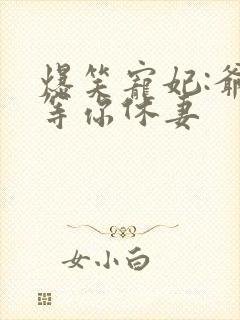 爆笑寵妃:爺
等你休妻
女小白